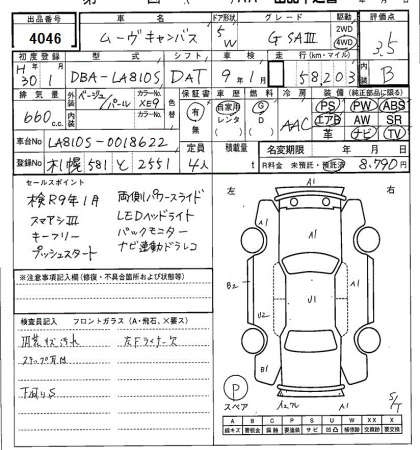 出品番号 車名 ドア形状 グレード 駆動 評価点
4046 ムーヴキャンバス 5W G SAⅢ 2WD 4WD 3.5
初度登録 型式 シフト 車検 走行(km・マイル) 内装
H30 1 DBA-LA810S DAT 9年1月 58,203 B
排気量 外装色 ベージュ/パール カラーNo. XE9 色替 保証書 車歴 燃料 冷房 装備(純正部品に限る)
660cc 内装色 カラーNo. 有 無 自家用 レンタ G D AAC PS PW ABS
エアB AW SR
革 ナビ TV
車台No LA810S-0018622 定員 積載量 名変期限 年 月 日
登録No 札幌581 と 2551 4人 t R料金 未預託・預託済 8,790円
セールスポイント
検R9年1月 両側パワースライド
スマアシⅢ LEDヘッドライト
キーフリー バックモニター
プッシュスタート ナビ連動ドラレコ
※注意事項記入欄(修復・不具合箇所および状態等)
検査員記入 フロントガラス(A・飛石、×要ス)
内装キズ汚れ 左Fライナー欠
下廻りS
左 右
A1
A1
A1
B2 U1
U2
B1
P スペア A1 A1 S/T
A B C P S U W X XX
線キズ 要板金 腐蝕 要塗装 サビ 凹凸 補修跡 交換跡 要交換